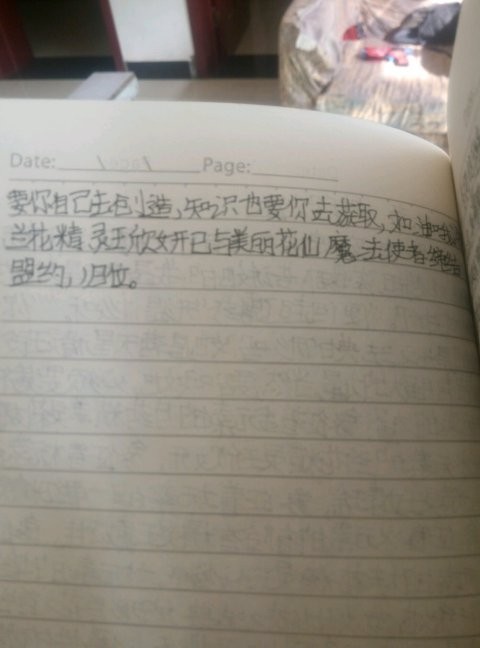 Date: / / Page:
要你自己去创造,知识也要你去获取,如油
兰花精灵王欣妍已与美丽花仙魔法使者缔结
盟约,归位。